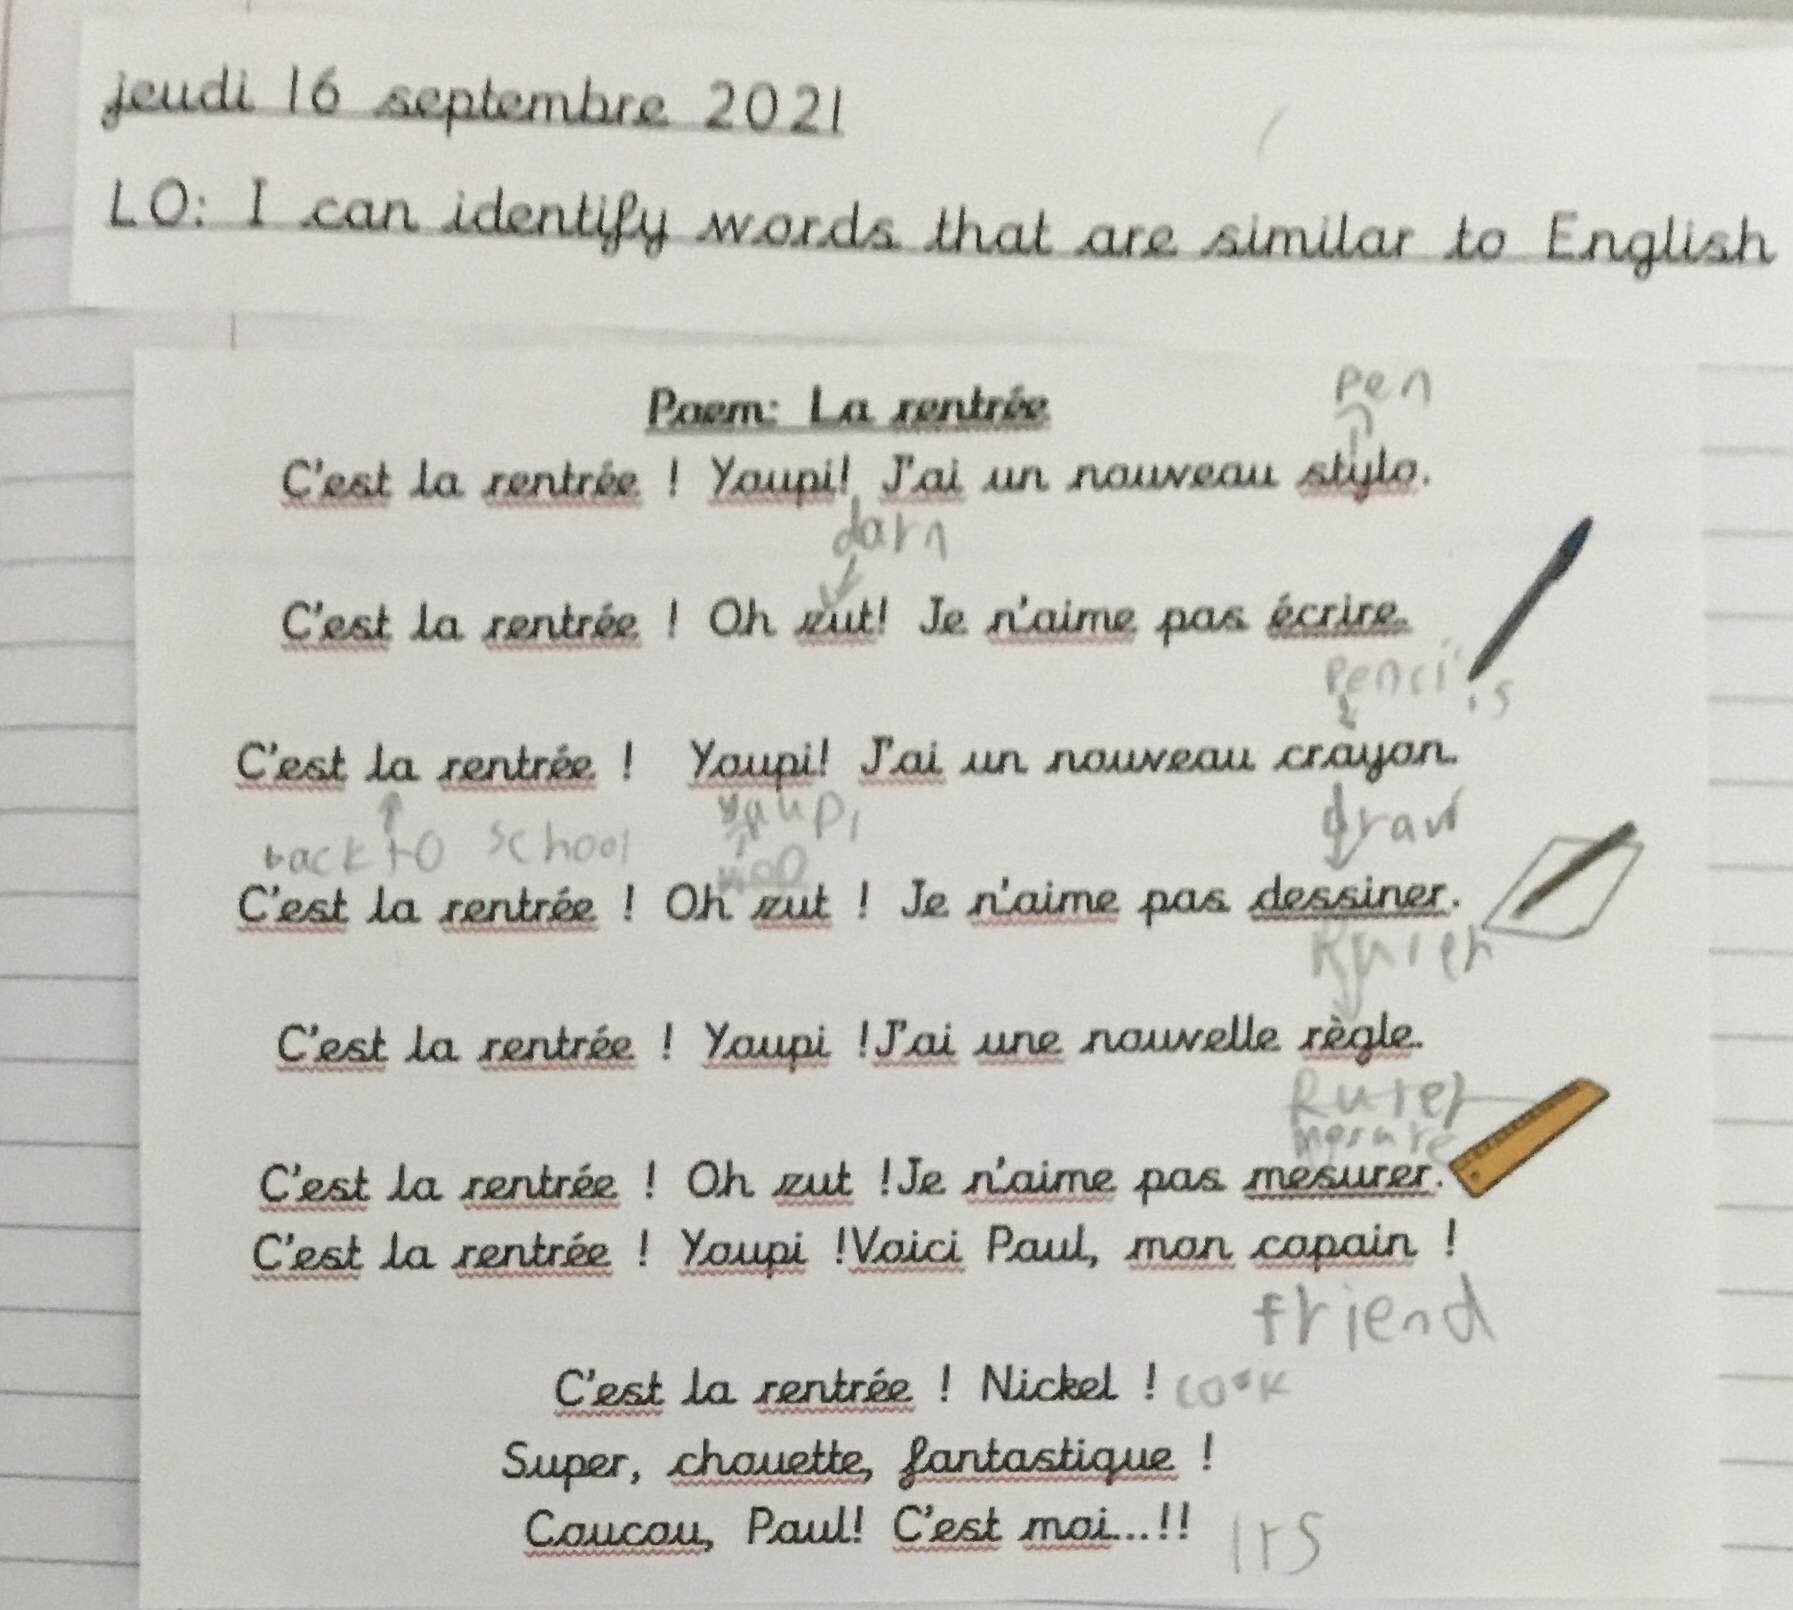 jeudi 16 septembre 2021
LO: I can identify words that are similar to English
pen
Poem: La rentrée
C'est la rentrée ! Youpi! J'ai un nouveau stylo.
darn
C'est la rentrée ! Oh zut! Je n'aime pas écrire.
C'est la rentrée ! Youpi! J'ai un nouveau crayon.
draw
back to school
C'est la rentrée ! Oh zut ! Je n'aime pas dessiner.
C'est la rentrée ! Youpi !J'ai une nouvelle règle.
C'est la rentrée ! Oh zut !Je n'aime pas mesurer.
C'est la rentrée ! Youpi !Voici Paul, mon copain !
friend
C'est la rentrée ! Nickel !
Super, chouette, fantastique !
Coucou, Paul! C'est moi...!!